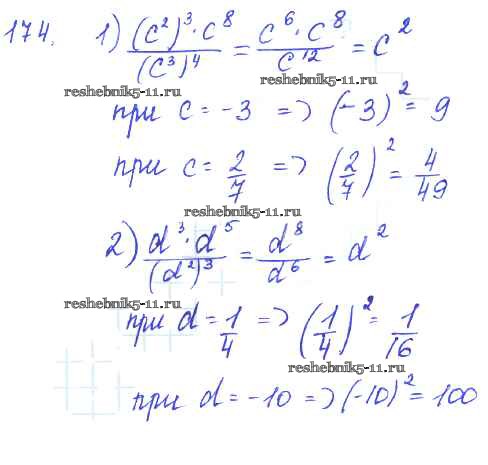 174. 1) (c²)³·c⁸/(c³)⁴ = c⁶·c⁸/c¹² = c²
reshebnik5-11.ru reshebnik5-11.ru
при c = -3 => (-3)² = 9
при c = 2/7 => (2/7)² = 4/49
reshebnik5-11.ru
2) d³·d⁵/(d²)³ = d⁸/d⁶ = d²
reshebnik5-11.ru
при d = 1/4 => (1/4)² = 1/16
reshebnik5-11.ru
при d = -10 => (-10)² = 100